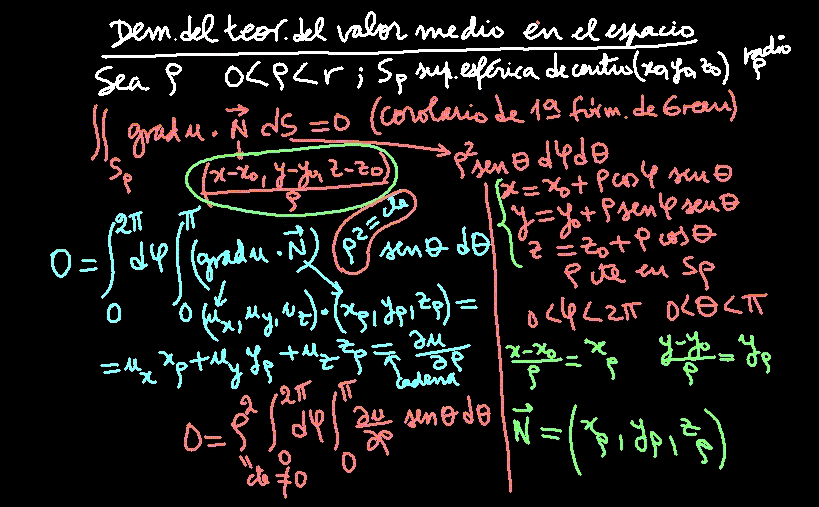 Dem. del teor. del valor medio en el espacio
Sea ρ 0<ρ<r ; Sρ sup. esférica de centro (x₀,y₀,z₀) radio ρ
∬_{Sρ} grad u · N⃗ dS = 0 (corolario de 1ª fórm. de Green)
(x-x₀, y-y₀, z-z₀)/ρ
ρ² sen θ dφ dθ
x = x₀ + ρ cos φ sen θ
y = y₀ + ρ sen φ sen θ
z = z₀ + ρ cos θ
ρ cte en Sρ
0<φ<2π 0<θ<π
(x-x₀)/ρ = xρ (y-y₀)/ρ = yρ
N⃗ = (xρ, yρ, zρ)
0 = ∫₀^{2π} dφ ∫₀^{π} (grad u · N⃗) ρ²=cte sen θ dθ
(u_x, u_y, u_z) · (xρ, yρ, zρ) =
= u_x xρ + u_y yρ + u_z zρ = ∂u/∂ρ
cadena
0 = ρ² ∫₀^{2π} dφ ∫₀^{π} ∂u/∂ρ sen θ dθ
"cte ≠ 0